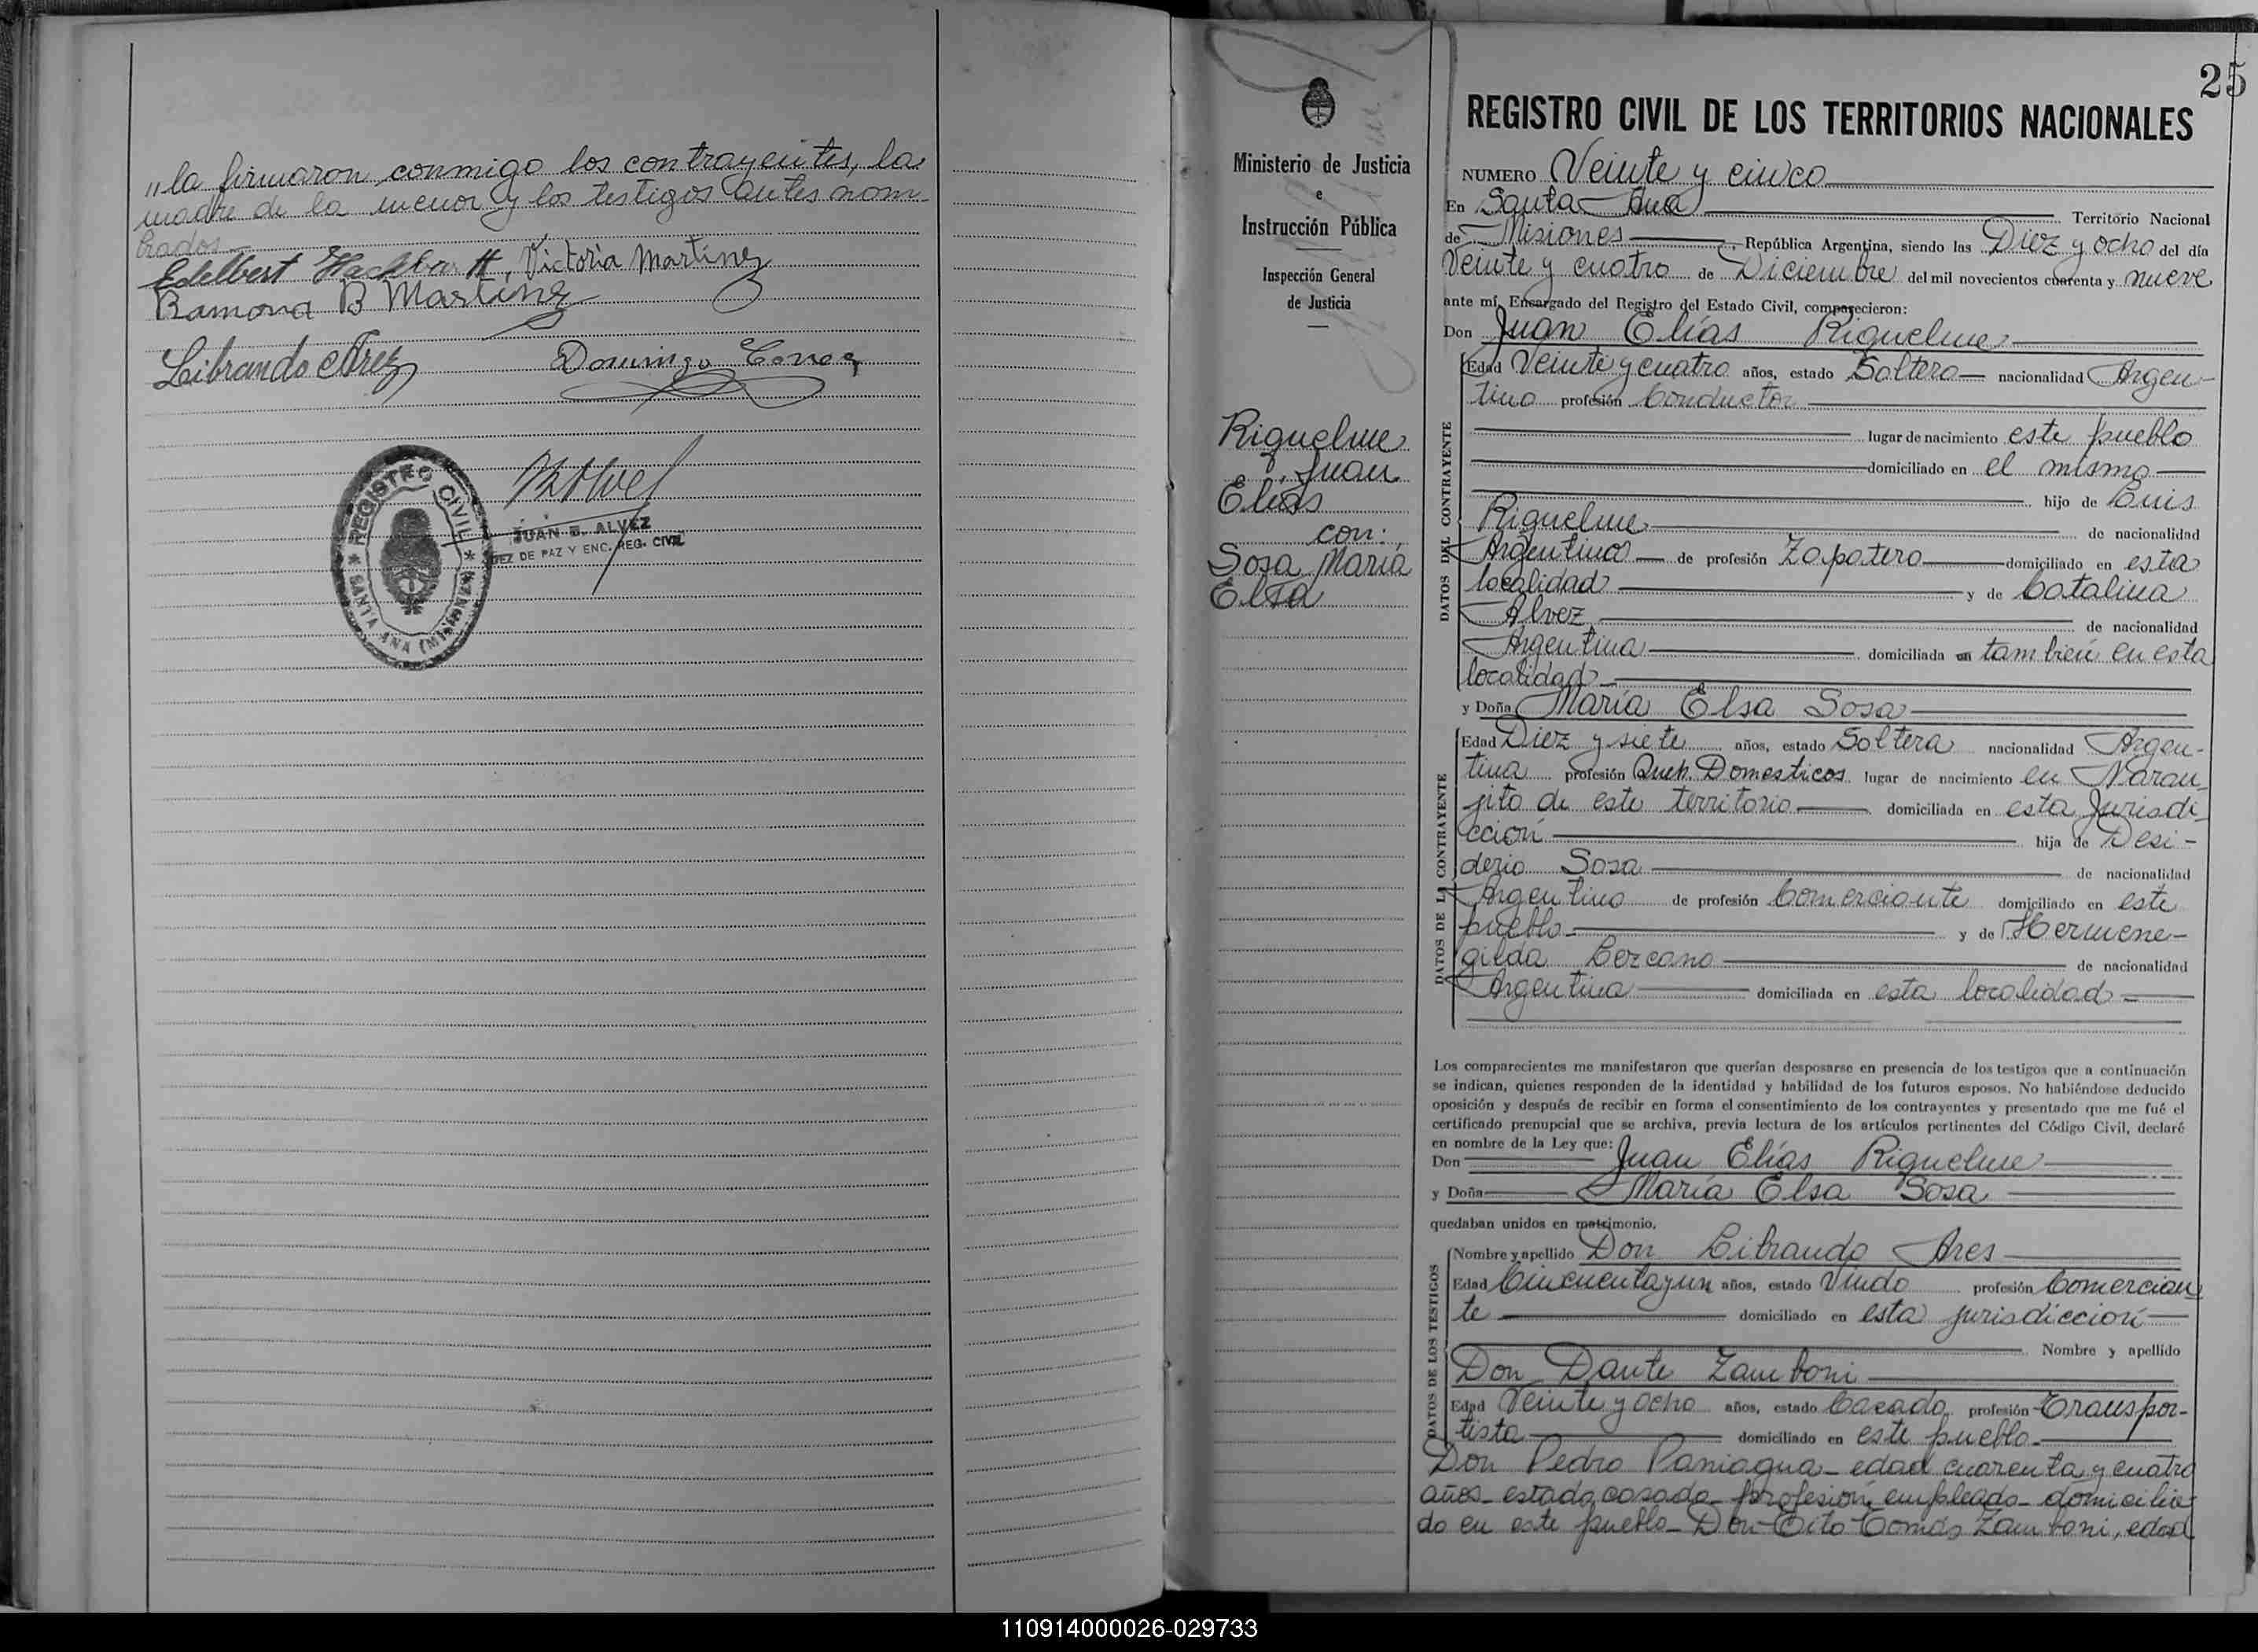 „la firmaron conmigo los contrayentes, la
madre de la menor y los testigos antes nom-
brados.-
Edelbert Hachbartt, Victoria Martinez
Ramona B Martinez
Librando Arez
Domingo Correa
REGISTRO CIVIL
SANTA ANA (MISIONES)
JUAN E. ALVEZ
JUEZ DE PAZ Y ENC. REG. CIVIL
25
Ministerio de Justicia
e
Instrucción Pública
Inspección General
de Justicia
Riquelme
Juan
Elías
con:
Sosa María
Elsa
REGISTRO CIVIL DE LOS TERRITORIOS NACIONALES
NUMERO Veinte y cinco
En Santa Ana Territorio Nacional
de Misiones, República Argentina, siendo las Diez y ocho del día
Veinte y cuatro de Diciembre del mil novecientos cuarenta y nueve
ante mí, Encargado del Registro del Estado Civil, comparecieron:
Don Juan Elías Riquelme
DATOS DEL CONTRAYENTE
Edad Veinte y cuatro años, estado Soltero nacionalidad Argen-
tino profesión Conductor
lugar de nacimiento este pueblo
domiciliado en el mismo
hijo de Luis
Riquelme de nacionalidad
Argentino de profesión Zapatero domiciliado en esta
localidad y de Catalina
Alvez de nacionalidad
Argentina domiciliada en también en esta
localidad
y Doña María Elsa Sosa
DATOS DE LA CONTRAYENTE
Edad Diez y siete años, estado Soltera nacionalidad Argen-
tina profesión Queh. Domesticos lugar de nacimiento en Naran-
jito de este territorio domiciliada en esta Jurisdi-
cción hija de Desi-
derio Sosa de nacionalidad
Argentino de profesión Comerciante domiciliado en este
pueblo y de Hermene-
gilda Lezcano de nacionalidad
Argentina domiciliada en esta localidad
Los comparecientes me manifestaron que querían desposarse en presencia de los testigos que a continuación
se indican, quienes responden de la identidad y habilidad de los futuros esposos. No habiéndose deducido
oposición y después de recibir en forma el consentimiento de los contrayentes y presentado que me fué el
certificado prenupcial que se archiva, previa lectura de los artículos pertinentes del Código Civil, declaré
en nombre de la Ley que:
Don Juan Elías Riquelme
y Doña María Elsa Sosa
quedaban unidos en matrimonio.
DATOS DE LOS TESTIGOS
Nombre y apellido Don Librando Ares
Edad Cincuenta y un años, estado Viudo profesión Comercian-
te domiciliado en esta jurisdicción
Nombre y apellido
Don Dante Zamboni
Edad Veinte y ocho años, estado Casado profesión Transpor-
tista domiciliado en este pueblo
Don Pedro Paniagua- edad cuarenta y cuatro
años- estado casado- profesión empleado- domicilia-
do en este pueblo- Don Tito Tomás Zamboni, edad
110914000026-029733